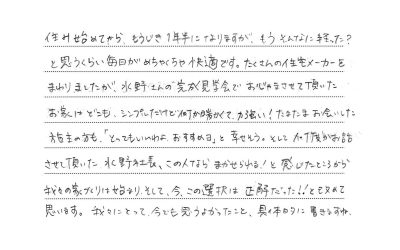 住み始めてから、もうじき1年半になりますが、もうそんなに経った?
と思うくらい毎日がめちゃくちゃ快適です。たくさんの住宅メーカーを
まわりましたが、水野さんの完成見学会でおじゃまさせて頂いた
お家はどこも、シンプルだけど何か暖かくて、力強い!たまたまお会いした
施主の方も、「とってもいいわよ。おすすめヨ」と幸せそう。そして何度かお話
させて頂いた水野社長、この人ならまかせられる!と感じたところから
我々の家づくりは始まり、そして、今、この選択は正解だった!!と改めて
思います。我々にとって、今でも思うよかったこと、具体的に書きますね。